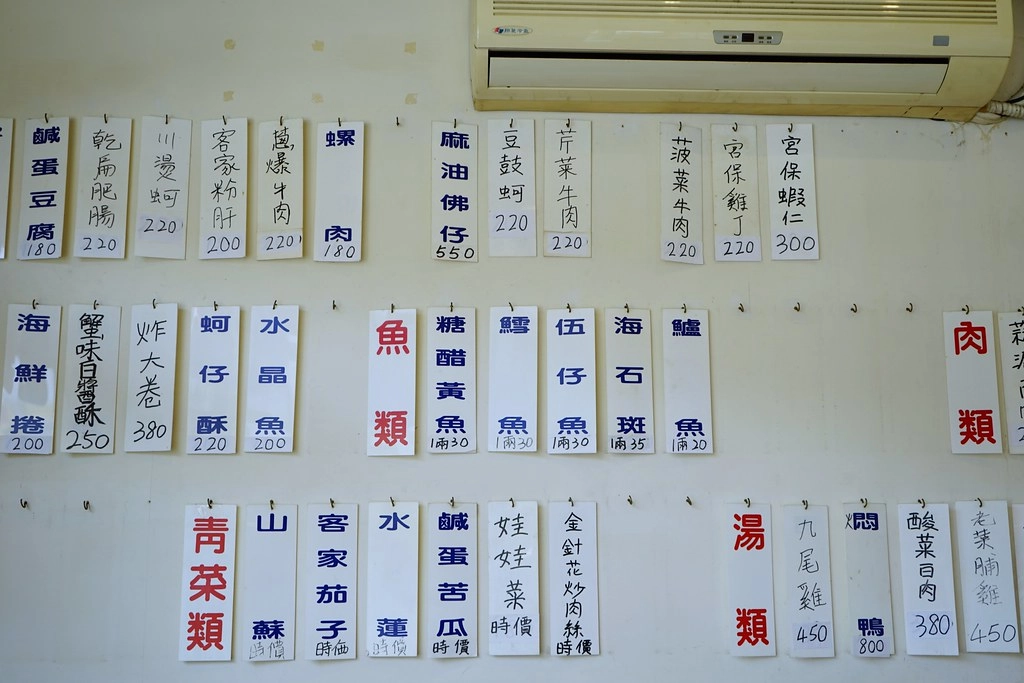 鹹蛋豆腐
180
乾扁肥腸
220
川燙蚵
220
客家粉肝
200
蔥爆牛肉
220
螺肉
180
麻油佛仔
550
豆鼓蚵
220
芹菜牛肉
220
菠菜牛肉
220
宮保雞丁
220
宮保蝦仁
300
海鮮捲
200
蟹味白醬酥
250
炸大卷
380
蚵仔酥
220
水晶魚
200
魚類
糖醋黃魚
1兩30
鱈魚
1兩30
伍仔魚
1兩30
海石斑
1兩35
鱸魚
1兩20
肉類
青菜類
山蘇
時價
客家茄子
時価
水蓮
時價
鹹蛋苦瓜
時價
娃娃菜
時價
金針花炒肉絲
時價
湯類
九尾雞
450
燜鴨
800
酸菜白肉
380
老菜脯雞
450